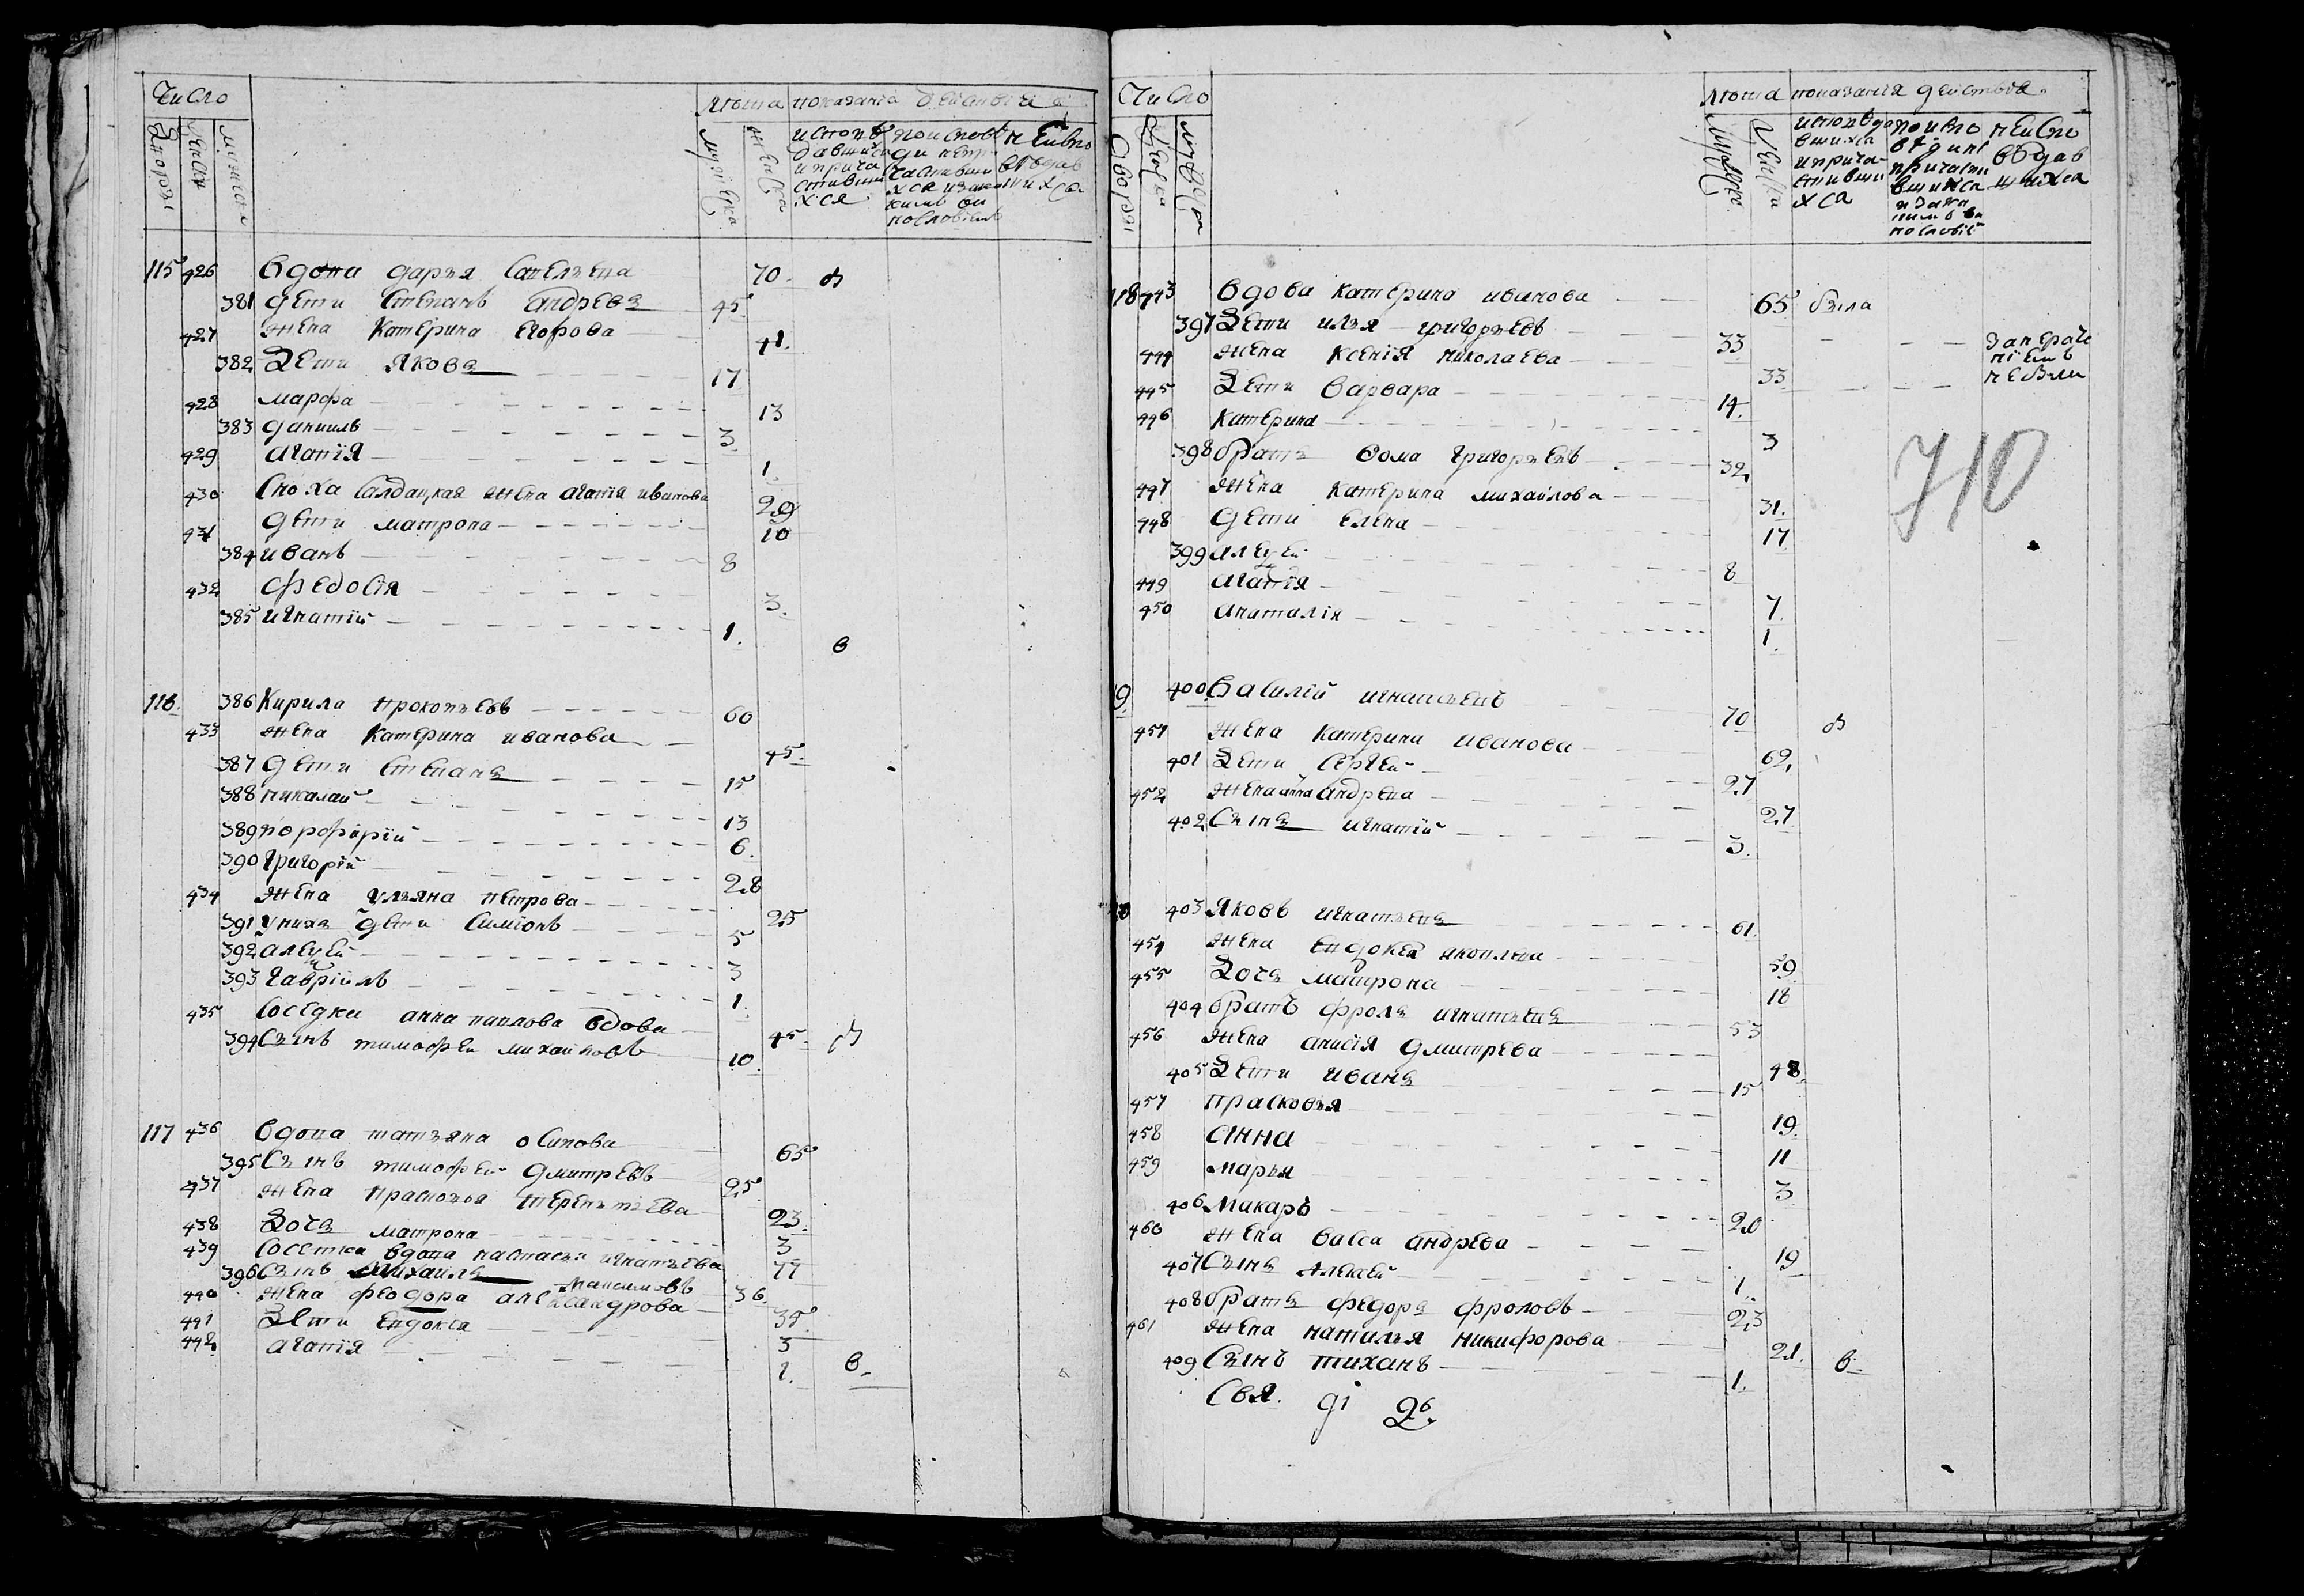 Число
лѣта показанія действія
дворы
женска
мужска
мужеска
женска
исповѣдавшихся и причастившихся
неиспо
ведав
шихся
115 426 вдова дарья Савельева 70. б
381 дети Степанъ андреевъ 45
427 жена Катерина Егорова 41.
382 дети Яковъ 17
428 марфа 13
383 данiилъ 3.
429 агапія 1.
430 Сноха Салдацкая жена агапія иванова 29
431 дети матрона 10
384 иванъ 8
432 федосія 3.
385 игнатій 1. в
116. 386 Кирила прокопьевъ 60
433 жена Катерина иванова 45.
387 дети Степанъ 15
388 николай 13
389 порфирій 6.
390 григорій 28
434 жена ульяна петрова 25
391 у нихъ дети Симіонъ 5
392 алеѯей 3
393 гавріилъ 1.
435 Соседка анна павлова вдова 45. б
394 Сынъ тимофей михайловъ 10.
117 436 вдова татьяна осипова 65
395 Сынъ тимофей дмитревъ 25.
437 жена прасковья терентьева 23.
438 дочь матрона 3
439 Соседка вдова настасья игнатьева 77
396 Сынъ михаилъ максимовъ 36.
440 жена феодора александрова 35.
441 дети евдокса 3
442 агапія 1. в.
Число
лѣта показанія действія.
дворы
мужеска
женска
исповѣдавшихся и причастившихся
неиспо
вѣдав
шихся
118 443 вдова катерина иванова 65 была
397 дети илья григорьевъ 33
444 жена ксенія николаева 33
445 дети варвара 14.
446 катерина 3
398 братъ фома григорьевъ 32.
447 жена катерина михайлова 31.
448 дети елена 17
399 алеѯей 8
449 агапія 7.
450 анаталія 1.
710
9. 400 василій игнатьевъ 70 б
451 жена катерина иванова 62.
401 дети сергей 27
452 жена анна андреева 27
402 Сынъ игнатій 3.
403 Яковъ игнатьевъ 61.
454 жена евдокея яковлева 59.
455 дочь матрона 18
404 братъ фролъ игнатьевъ 53
456 жена анисія дмитрева 48.
405 дети иванъ 15
457 прасковья 19.
458 анна 11
459 марья 3
406 Макаръ 20
460 жена васса андрева 19
407 Сынъ Алексей 1.
408 братъ федоръ фроловъ 23
461 жена наталья никифорова 21. в.
409 Сынъ тиханъ 1.
Свя.